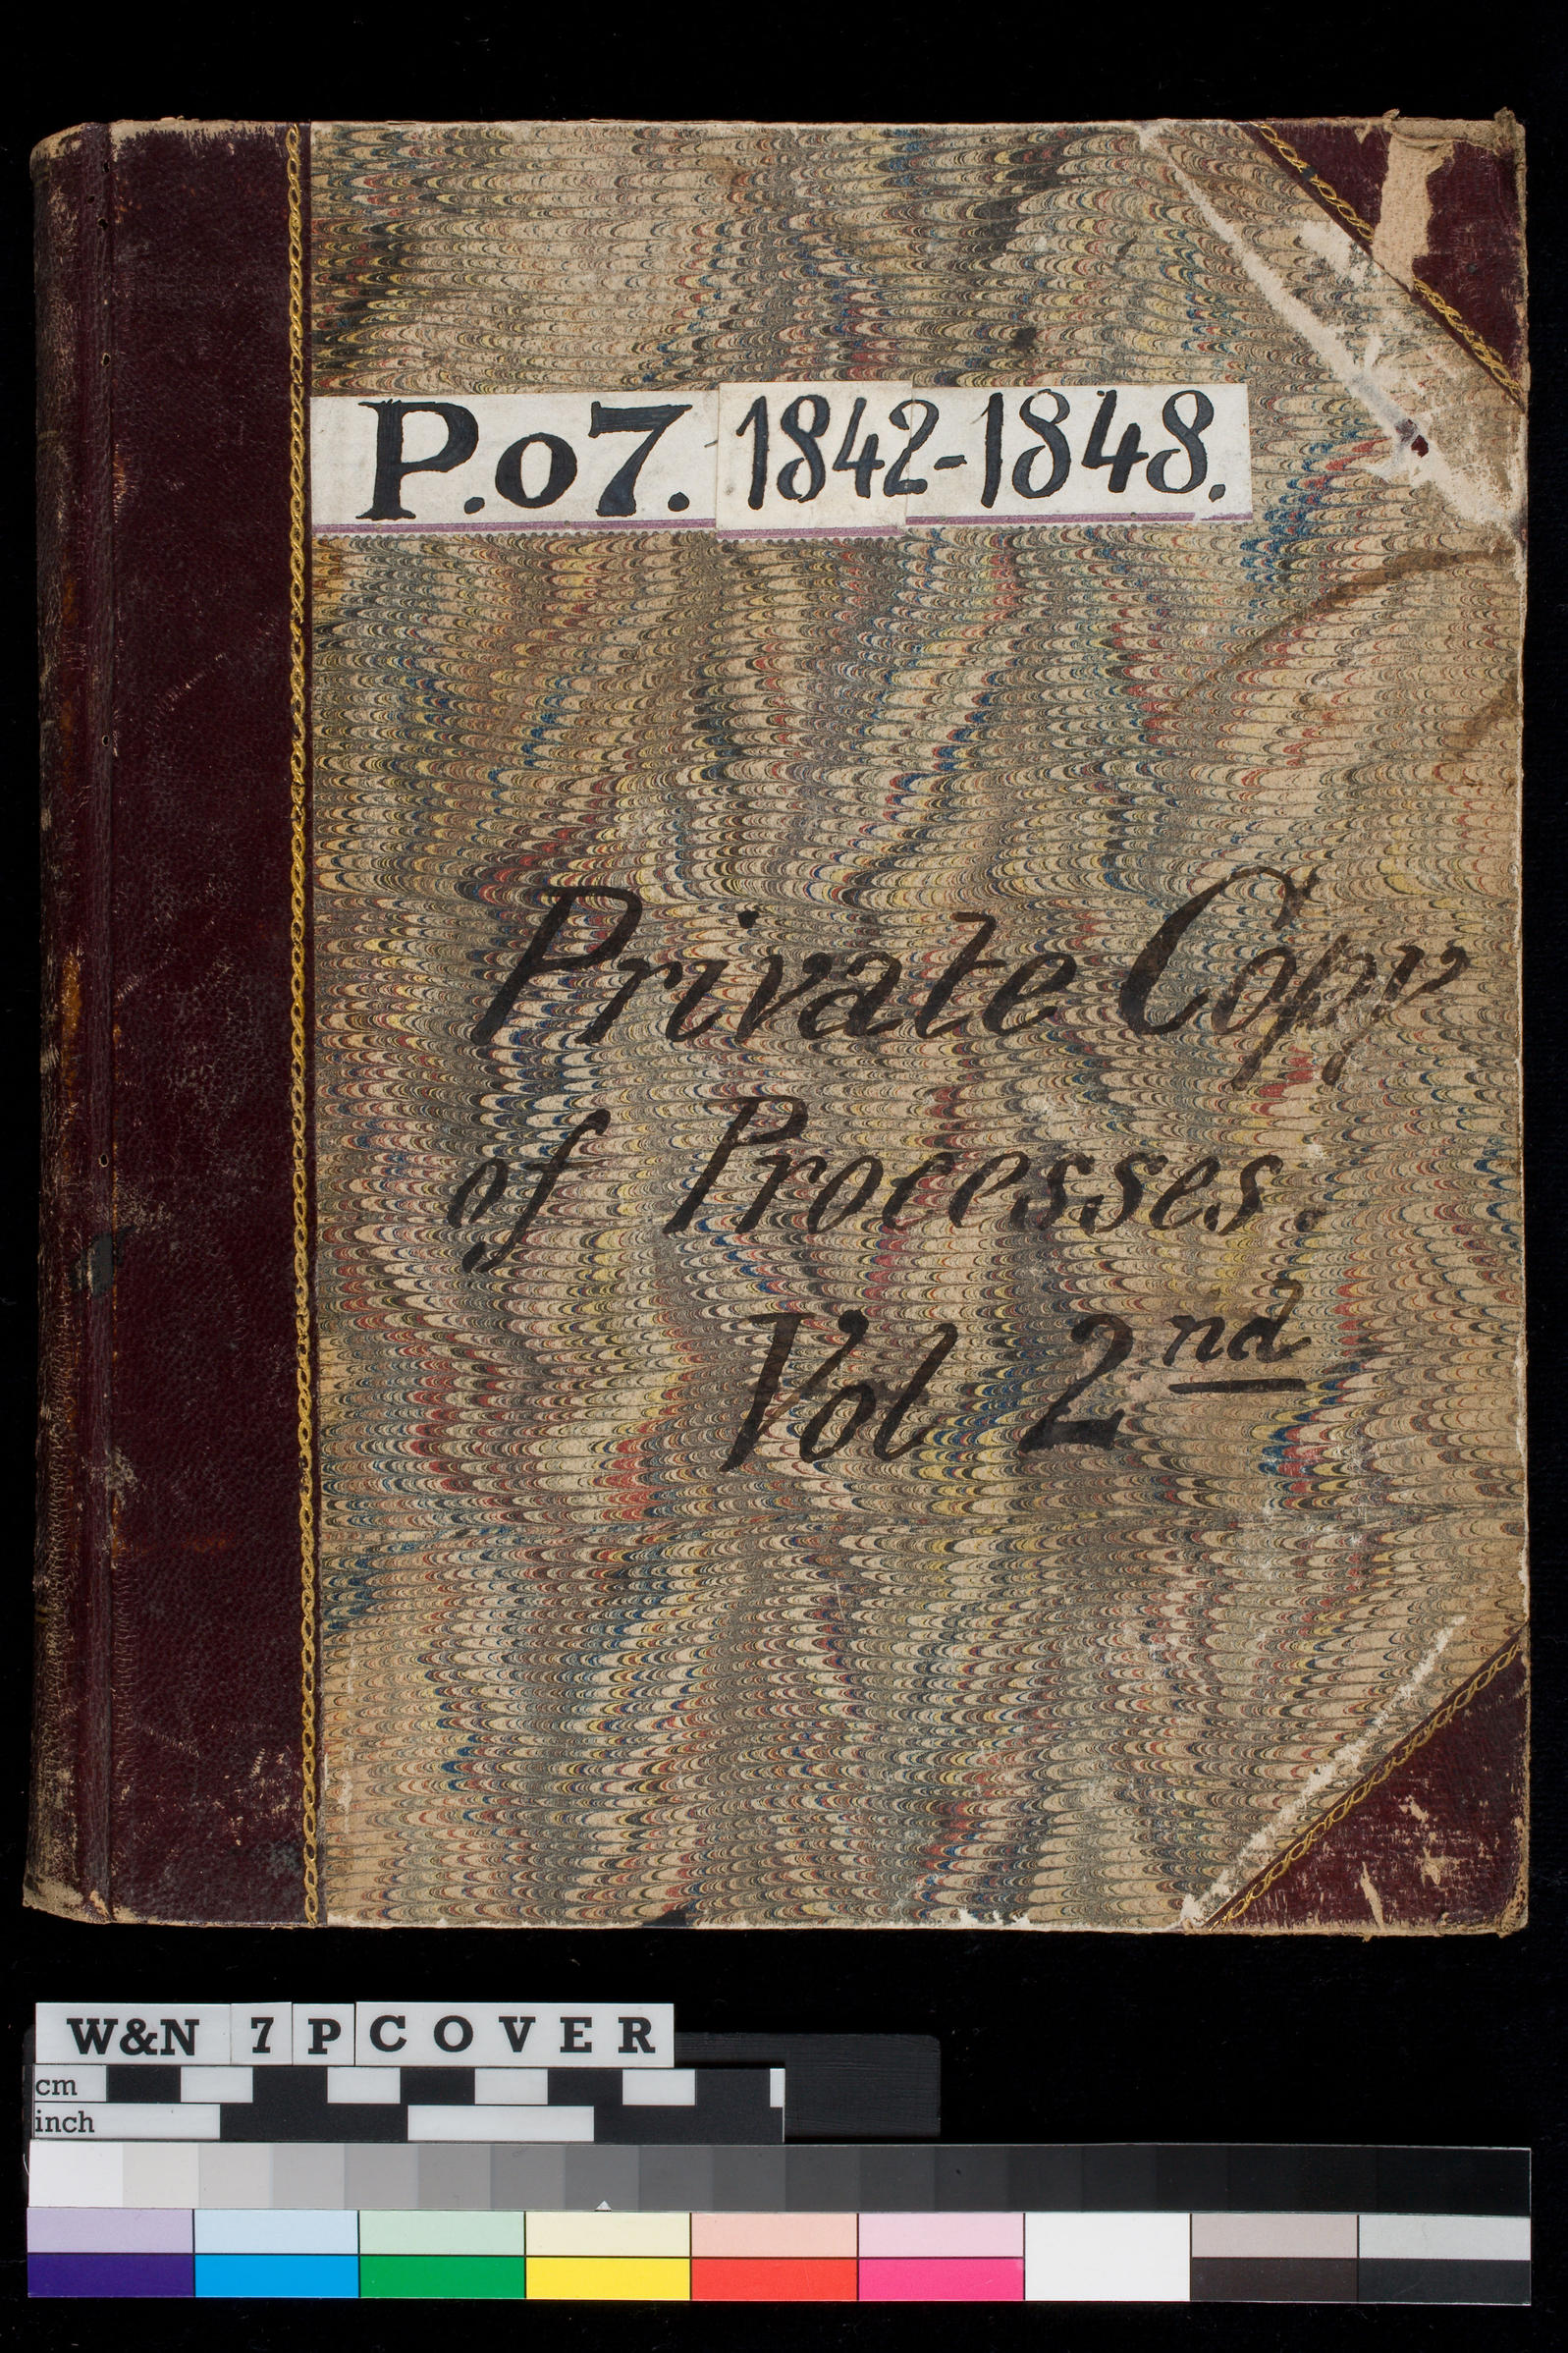 P.o7. 1842-1848.
Private Copy
of Processes.
Vol 2nd
W&N 7 P COVER
cm
inch